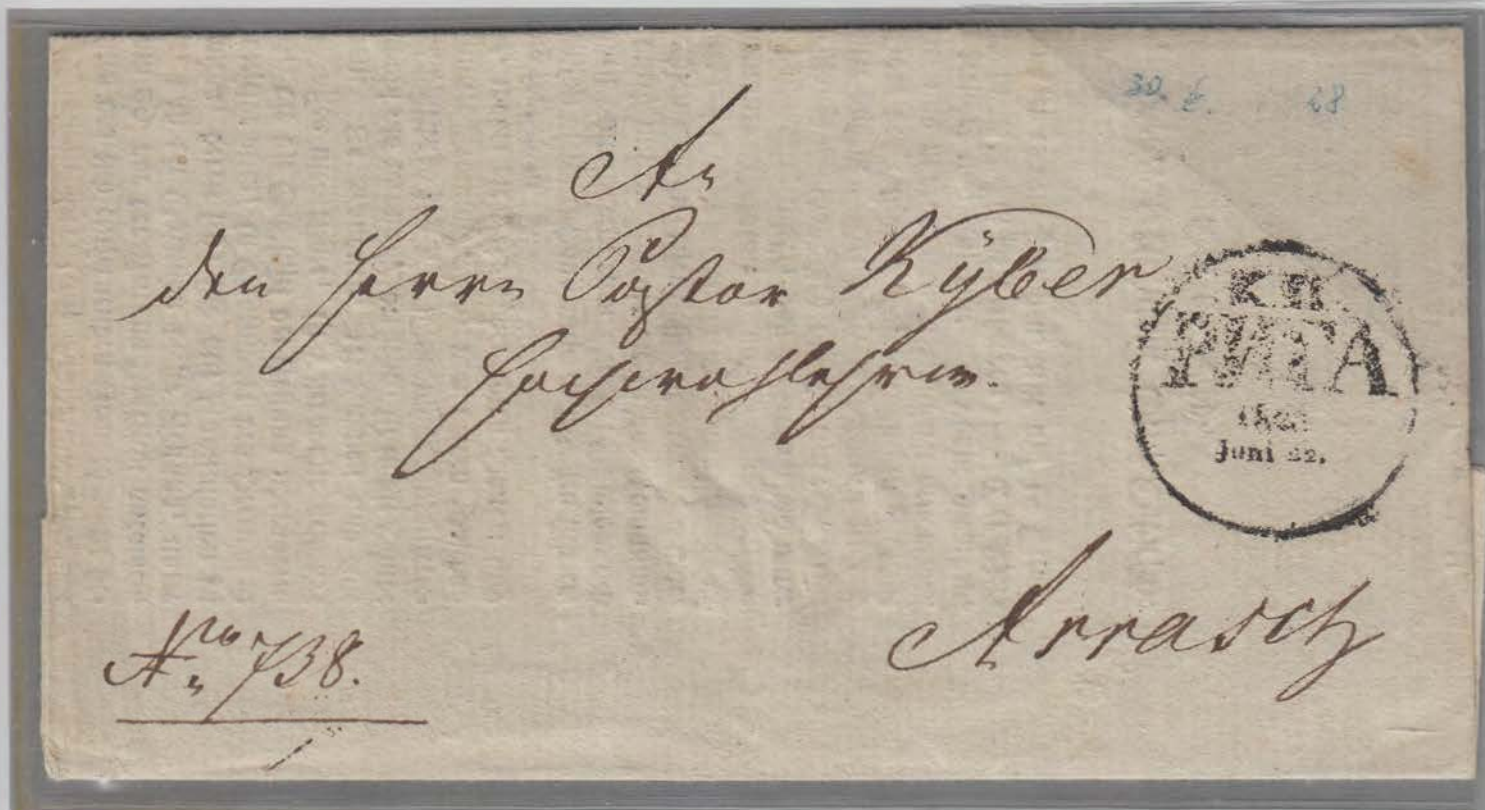 30. £. 28
An
den Herrn Pastor Kÿber
Hochwohlehrw.
К.П.
РИГА
Juni 22.
Arrasch
No 738.